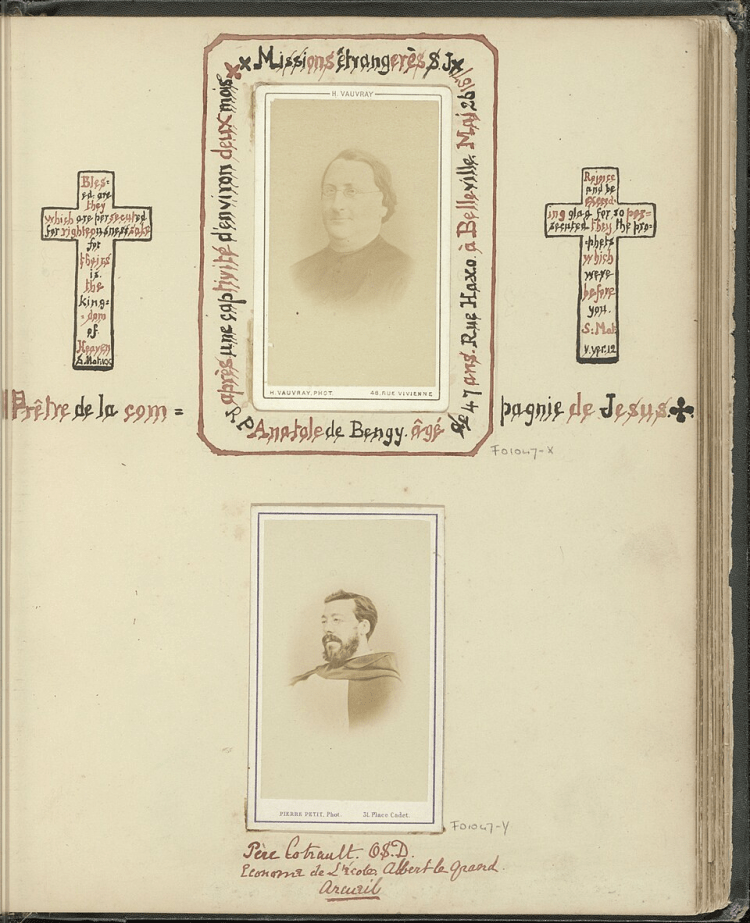 x Missions étrangères S.J x
après une captivité d'environ deux mois
H. VAUVRAY
H. VAUVRAY, PHOT. 46. RUE VIVIENNE
de 47 ans. Rue Haxo. à Belleville. Mai 26
R P Anatole de Bengy. âgé
Bles=
ed are
they
which are persecuted
for righteousness sake
for
theirs
is
the
king=
=dom
of
Heaven
S. Mat:
Rejoice
and be
exceed=
ing glad for so per=
secuted they the pro=
=phets
which
were
before
you.
S: Mat
v. ver. 12
Prêtre de la com =
pagnie de Jesus.
F01047-X
PIERRE PETIT, Phot. 31, Place Cadet.
F01047-Y
Père Cotrault. O.S.D.
Econome de L'école Albert le grand.
Arcueil